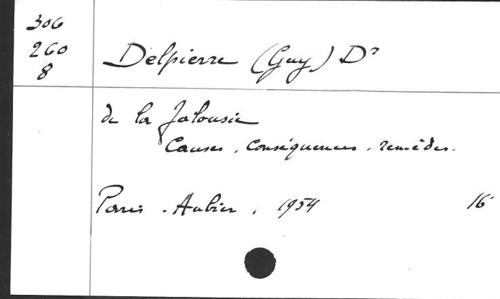 306
260
8
Delpierre (Guy) Dr
de la Jalousie
Causes, conséquences, remèdes.
Paris. Aubier, 1954 16°